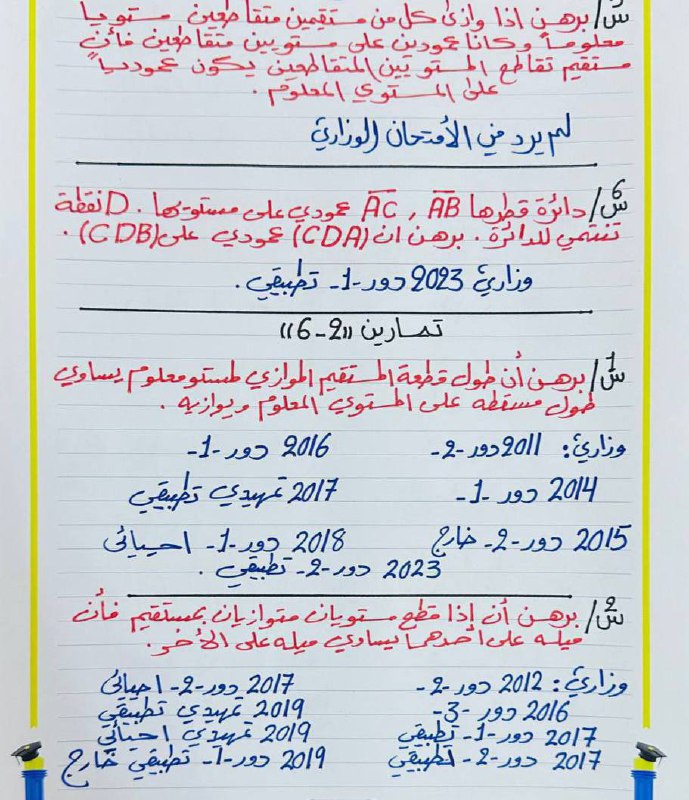 س٥/ برهن اذا وازى كل من مستقيمين متقاطعين مستوياً
معلوماً وكانا عمودين على مستويين متقاطعين فأن
مستقيم تقاطع المستويين المتقاطعين يكون عمودياً
على المستوي المعلوم .
لم يرد في الأمتحان الوزاري
س6/ دائرة قطرها AB , AC عمودي على مستويها . D نقطة
تنتمي للدائرة . برهن ان (CDA) عمودي على (CDB) .
وزاري 2023 دور -1- تطبيقي .
تمارين ((2-6))
س1/ برهن أن طول قطعة المستقيم الموازي لمستو معلوم يساوي
طول مسقطه على المستوي المعلوم ويوازيه .
وزاري: 2011 دور -2- 2016 دور -1-
2014 دور -1- 2017 تمهيدي تطبيقي
2015 دور -2- خارج 2018 دور -1- احيائي
2023 دور -2- تطبيقي .
س2/ برهن أن إذا قطع مستويان متوازيان بمستقيم فأن
ميله على أحدهما يساوي ميله على الآخر .
وزاري: 2012 دور -2- 2017 دور -2- احيائي
2016 دور -3- 2019 تمهيدي تطبيقي
2017 دور -1- تطبيقي 2019 تمهيدي احيائي
2017 دور -2- تطبيقي 2019 دور -1- تطبيقي خارج